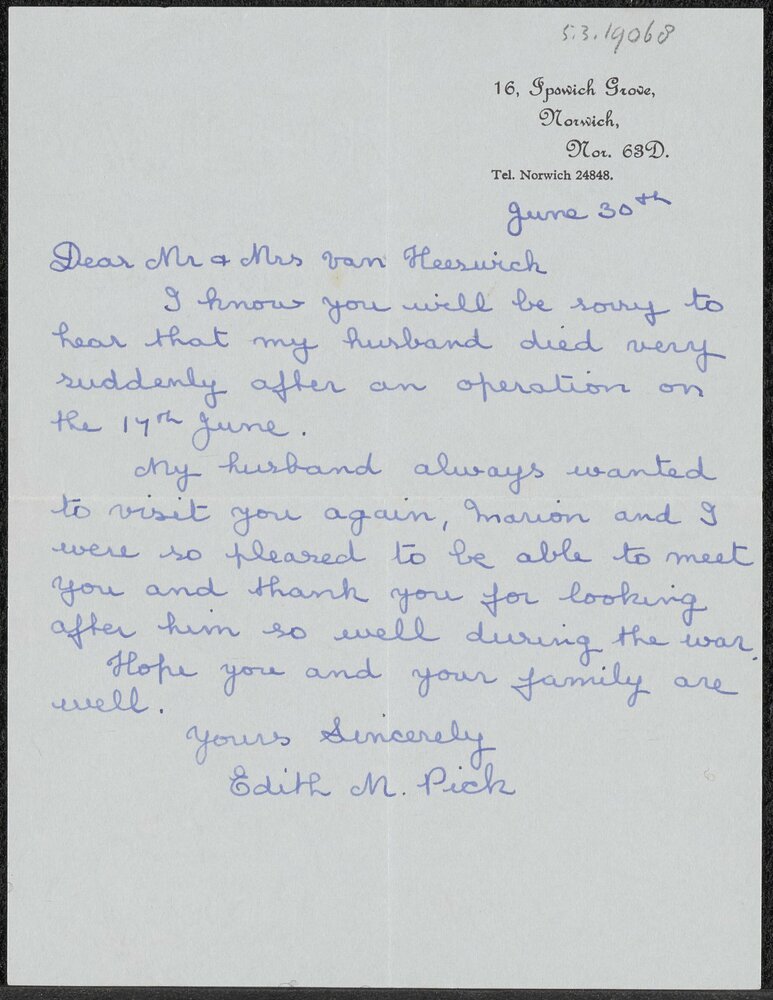 5.3.19068
16, Ipswich Grove,
Norwich,
Nor. 63D.
Tel. Norwich 24848.
June 30th
Dear Mr & Mrs van Heeswick
I know you will be sorry to
hear that my husband died very
suddenly after an operation on
the 17th June.
My husband always wanted
to visit you again, Marion and I
were so pleased to be able to meet
you and thank you for looking
after him so well during the war.
Hope you and your family are
well.
Yours Sincerely
Edith M. Pick